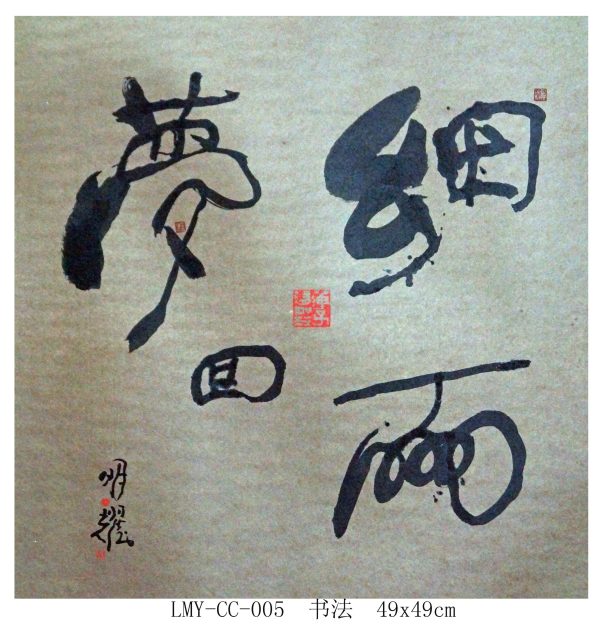 細雨
夢回
明耀
LMY-CC-005 书法 49x49cm